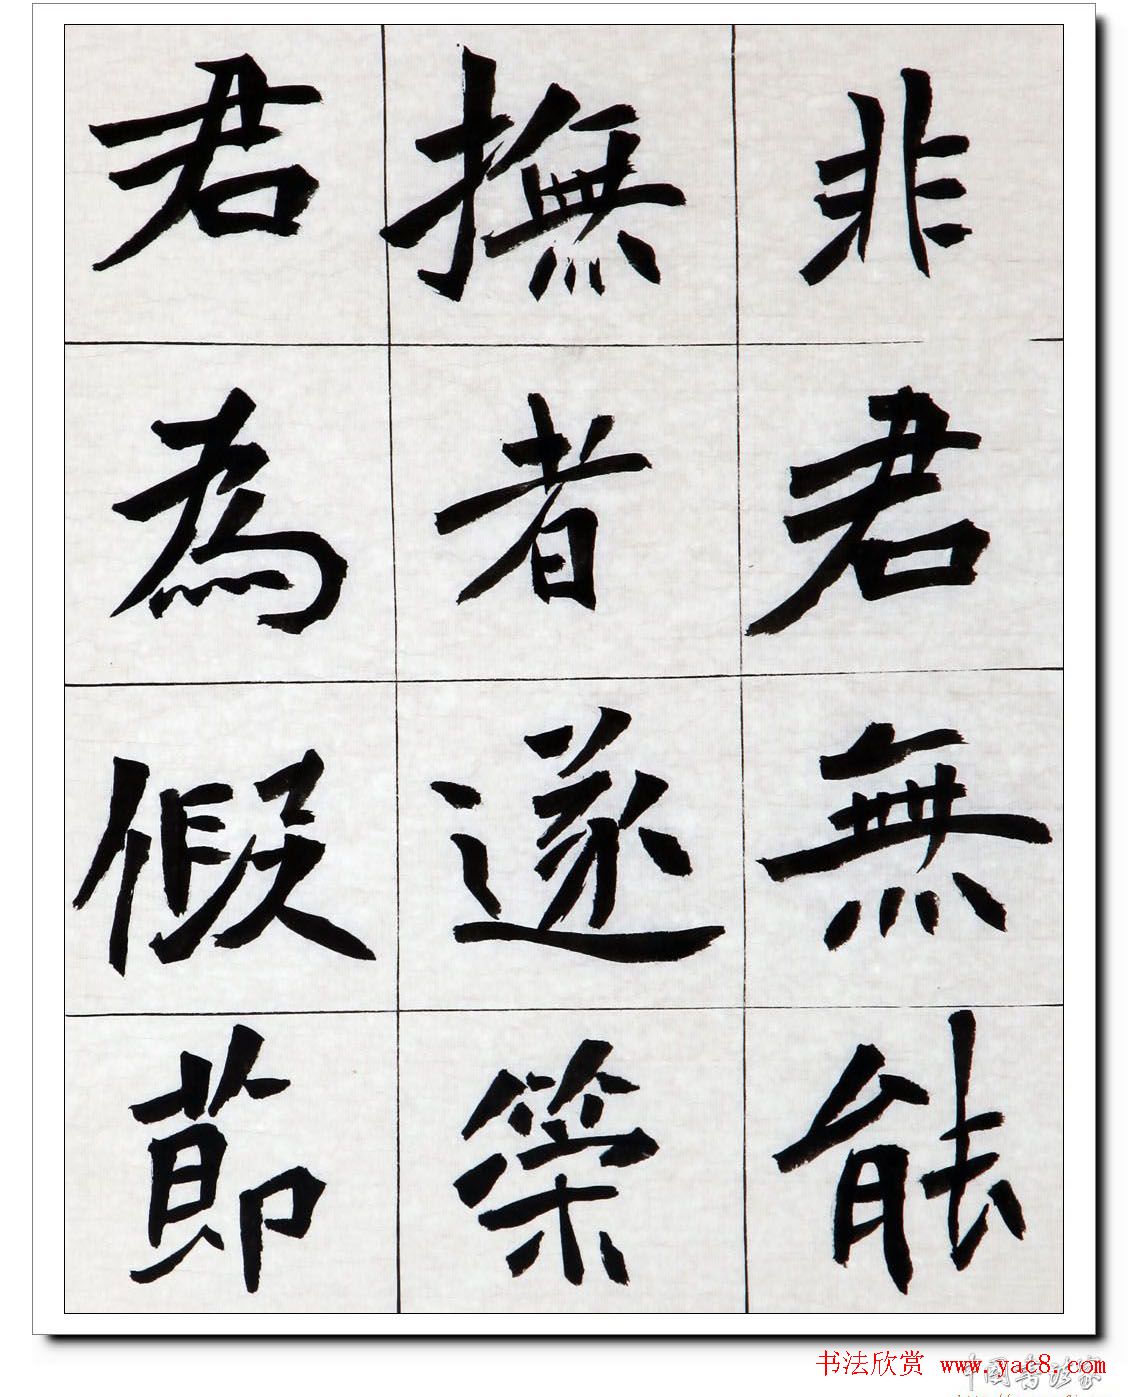 非君無能
撫者遂策
君為假節
书法欣赏 www.yac8.com
中国书法家